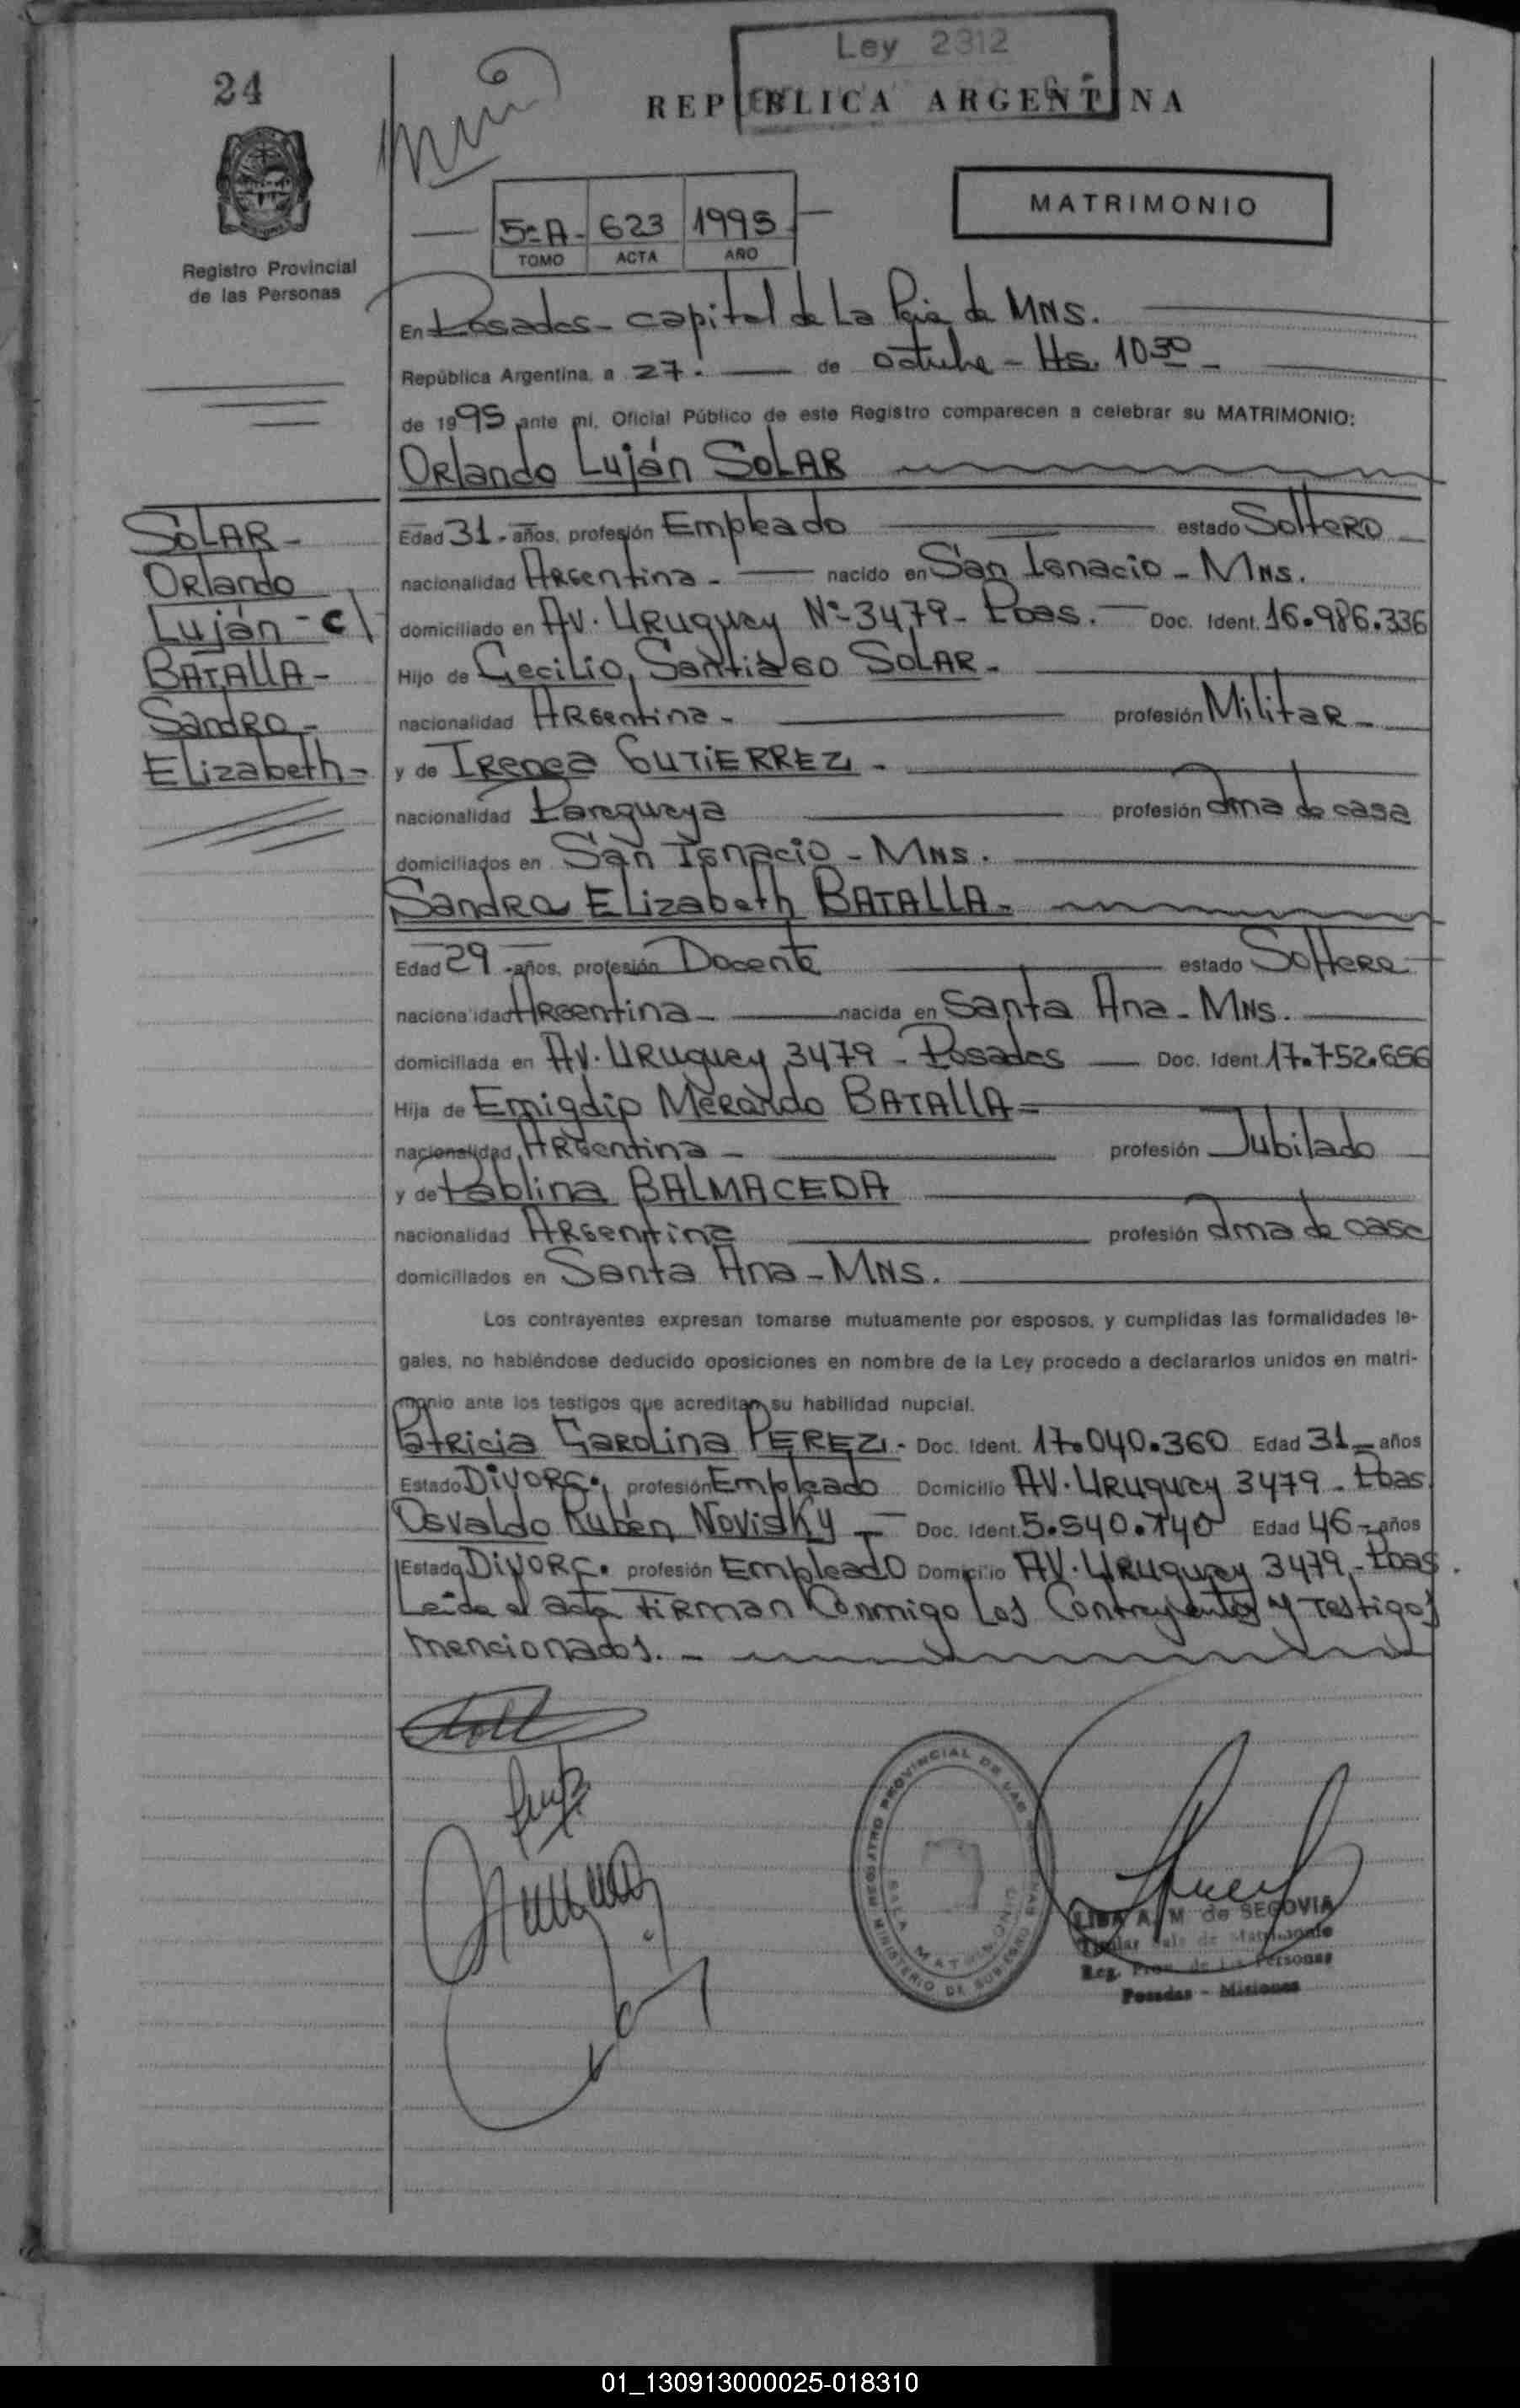 Ley 2312
24
REPUBLICA ARGENTINA
MATRIMONIO
5º A - 623 1995
TOMO ACTA AÑO
Registro Provincial
de las Personas
En Posadas - capital de La Pcia de MNS.
República Argentina, a 27. de octubre - Hs. 10 30 -
de 1995 ante mí, Oficial Público de este Registro comparecen a celebrar su MATRIMONIO:
Orlando Luján SOLAR
SOLAR -
Orlando
Luján - c/
BATALLA -
Sandra -
Elizabeth -
Edad 31 - años, profesión Empleado estado Soltero
nacionalidad Argentina - nacido en San Ignacio - MNS.
domiciliado en AV. URuguay Nº 3479 - Pdas. Doc. Ident. 16.986.336
Hijo de Cecilio Santiago SOLAR -
nacionalidad Argentina - profesión Militar -
y de Irenea GUTIERREZ -
nacionalidad Paraguaya profesión ama de casa
domiciliados en San Ignacio - MNS.
Sandra Elizabeth BATALLA -
Edad 29 - años, profesión Docente estado Soltera
nacionalidad Argentina - nacida en Santa Ana - MNS.
domiciliada en AV. URuguay 3479 - Posadas Doc. Ident. 17.752.656
Hija de Emigdio Merardo BATALLA =
nacionalidad Argentina - profesión Jubilado
y de Pablina BALMACEDA
nacionalidad Argentina profesión ama de casa
domiciliados en Santa Ana - MNS.
Los contrayentes expresan tomarse mutuamente por esposos, y cumplidas las formalidades le-
gales, no habiéndose deducido oposiciones en nombre de la Ley procedo a declararlos unidos en matri-
monio ante los testigos que acreditan su habilidad nupcial.
Patricia Carolina PEREZ - Doc. Ident. 17.040.360 Edad 31 - años
Estado Divorc. profesión Empleado Domicilio AV. URuguay 3479 - Pdas
Osvaldo Ruben Novisky - Doc. Ident. 5.540.740 Edad 46 - años
Estado Divorc. profesión Empleado Domicilio AV. URuguay 3479 - Pdas.
Leida el acta firman conmigo los contrayentes y testigos
mencionados. -
REGISTRO PROVINCIAL DE LAS PERSONAS
SALA MATRIMONIO
MINISTERIO DE GOBIERNO
A. M. de SEGOVIA
Titular Sala de Matrimonio
Reg. Prov. de las Personas
Posadas - Misiones
01_130913000025-018310